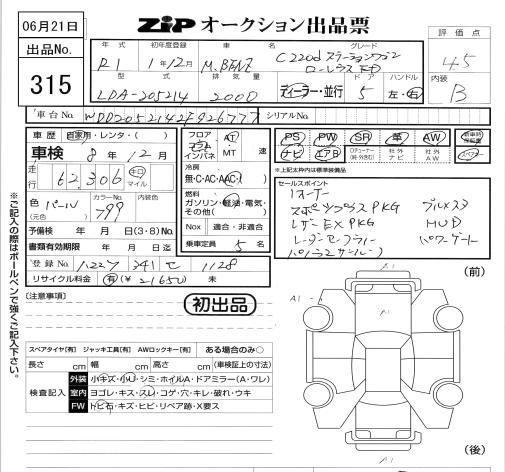 06月21日
ZIP オークション出品票
評価点
4.5
出品No.
315
年式 初年度登録 車名 グレード
R1 1年12月 M.BENZ C220d ステーションワゴン
ローレウスED
型式 排気量 ドア ハンドル
LDA-205214 2000 ディーラー・並行 5 左・右
内装
B
車台No. WDD2052142F926777 シリアルNo.
車歴 自家用・レンタ・( )
車検 8年12月
走行 62,306 キロ マイル
色 パール カラーNo. 799 内装色
(元色)
予備検 年 月 日(3・8)No.
書類有効期限 年 月 日迄
登録No.
341 1128
リサイクル料金 有(¥ ) 未
フロア コラム インパネ AT ・ MT 速
冷房
無・C・AC・AAC
燃料
ガソリン・軽油・電気・その他( )
Nox 適合・非適合
乗車定員 5名
PS PW SR 革 AW
ナビ エアB
社外 ナビ 社外 AW
スペアキー
※上記太枠内は標準装備品
セールスポイント
1オーナー
スポーツプラスPKG ブルメスタ
レザーEX PKG HUD
レーダーセーフティー パワーゲート
パノラマサンルーフ
※ご記入の際はボールペンで強くご記入下さい。
[注意事項]
初出品
(前)
A1
A1
A1
スペアタイヤ[有] ジャッキ工具[有] AWロックキー[有] ある場合のみ○
長さ cm 幅 cm 高さ cm (車検証上の寸法)
検査記入
外装 小キズ・小U・シミ・ホイルA・ドアミラー(A・ワレ)
室内 ヨゴレ・キス・スレ・コゲ・穴・キレ・破れ・ウキ
FW トビ石・キズ・ヒビ・リペア跡・X要ス
(後)